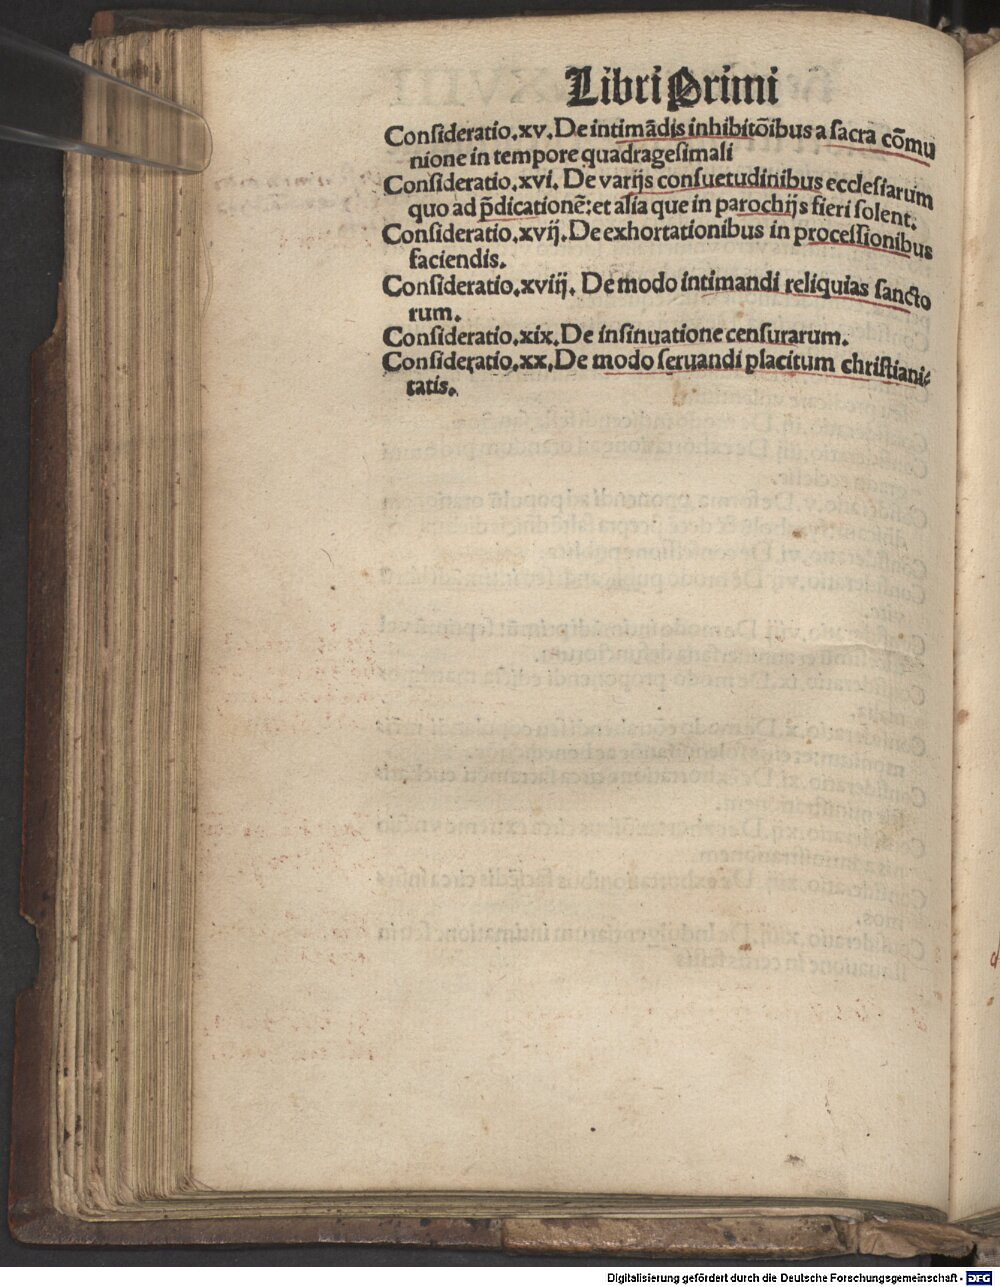 Libri Primi
Consideratio.xv. De intimãdis inhibitõibus a sacra cõmu
nione in tempore quadragesimali
Consideratio.xvi. De varijs consuetudinibus ecclesiarum
quo ad p̄dicationẽ: et alia que in parochijs fieri solent.
Consideratio.xvij. De exhortationibus in processionibus
faciendis.
Consideratio.xviij. De modo intimandi reliquias sancto
rum.
Consideratio.xix. De insinuatione censurarum.
Consideratio.xx. De modo seruandi placitum christiani⸗
tatis.
Digitalisierung gefördert durch die Deutsche Forschungsgemeinschaft - DFG